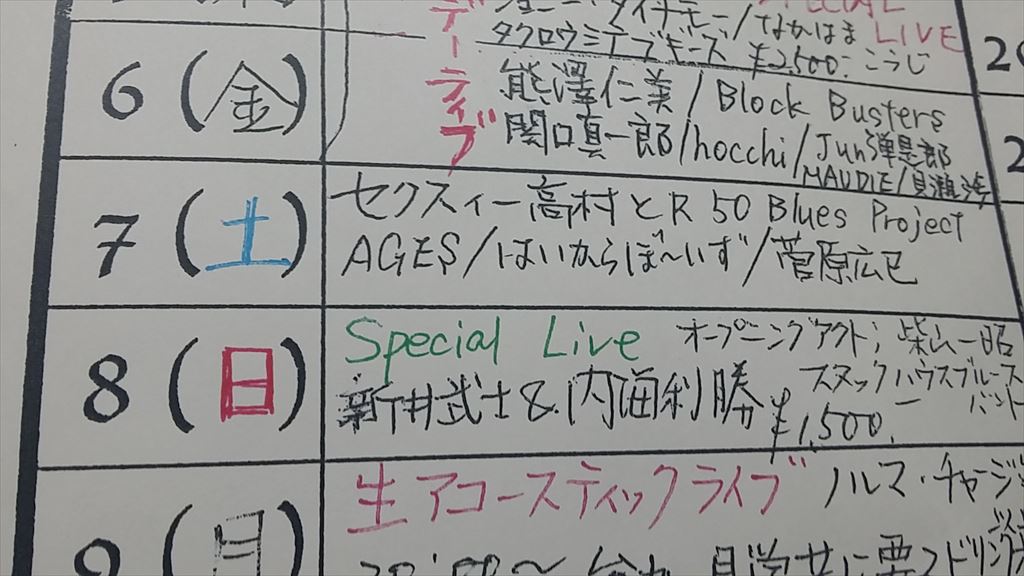 SPECIAL
ジョニー・ダイナモー/なかはま LIVE
タクロウミテブギーズ ¥2,500. こうじ
6 (金) デーティブ 熊澤仁美/Block Busters
関口真一郎/hocchi/Jun弾是郎
MAUDIE/貝瀬渉
7 (土) セクスィー高村とR 50 Blues Project
AGES/はいからぼ〜いず/菅原広巳
8 (日) Special Live オープニングアクト; 柴山一昭
新井武士&内海利勝 スタックハウスブルースバンド
¥1,500.
9 (月) 生アコースティックライブ ノルマ・チャージ